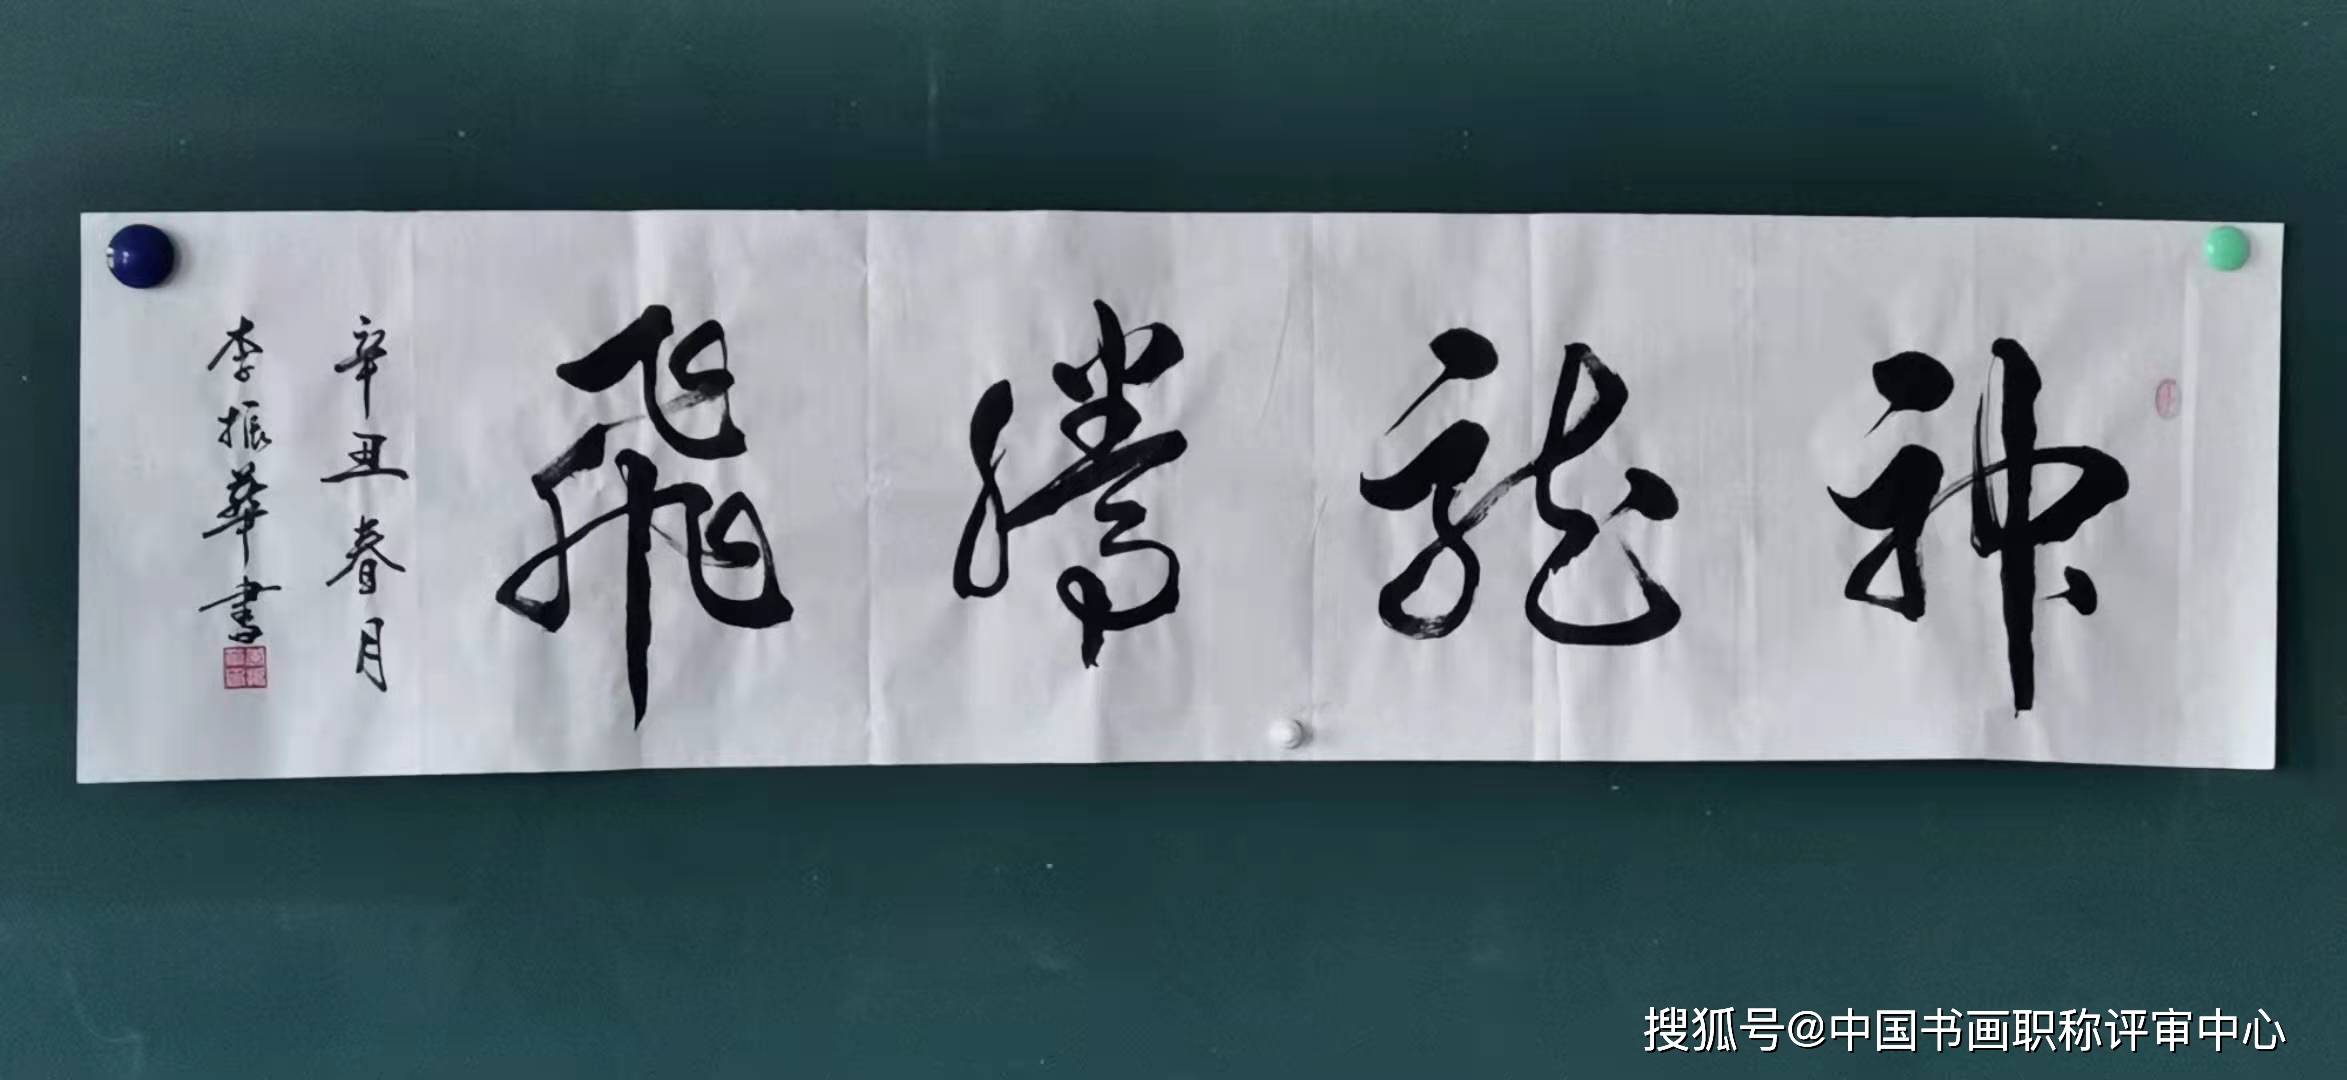 神龍騰飛
辛丑春月
李振華書
搜狐号@中国书画职称评审中心